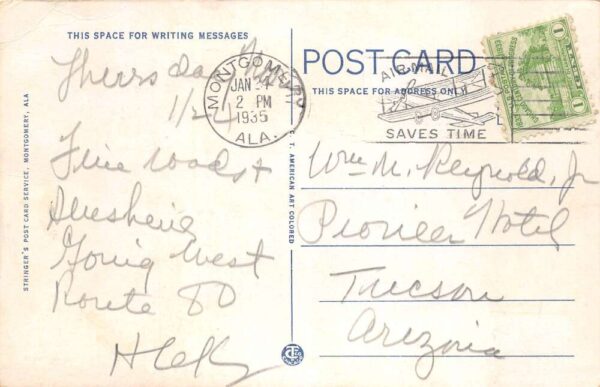 THIS SPACE FOR WRITING MESSAGES
POST CARD
THIS SPACE FOR ADDRESS ONLY
MONTGOMERY
JAN 24
2 PM
1935
ALA.
AIR MAIL
SAVES TIME
1
1
Thursday
1/24
Fine roads &
Sunshine
Going West
Route 80
Wm M. Reynold, Jr
Pioneer Hotel
Tucson
Arizona
STRINGER'S POST CARD SERVICE, MONTGOMERY, ALA
C. T. AMERICAN ART COLORED